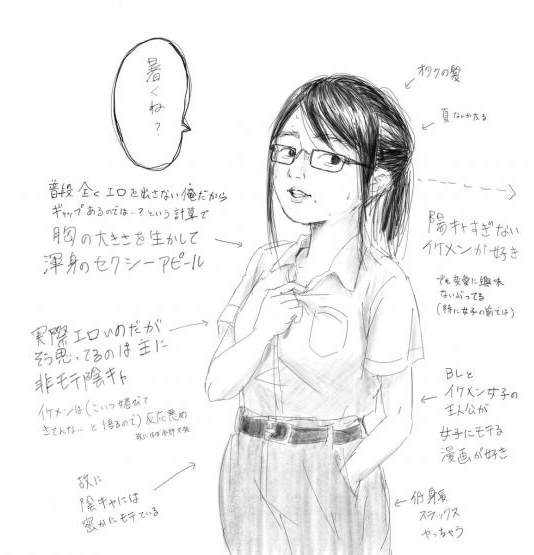 暑くね?
オタクの髪
夏なんか太る
普段全くエロを出さない俺だから
ギャップあるのでは…?という計算で
胸の大きさを生かして
渾身のセクシーアピール
陽キャすぎない
イケメンが好き
でも恋愛に興味
ないぶってる
(特に女子の前では)
実際エロいのだが
そう思ってるのは主に
非モテ陰キャ
イケメンは(こいつ媚びて
きてんな…と悟るので)反応悪め
BLと
イケメン女子の
主人公が
女子にモテる
漫画が好き
故に
陰キャには
密かにモテている
低身長
スラックス
やっちゃう